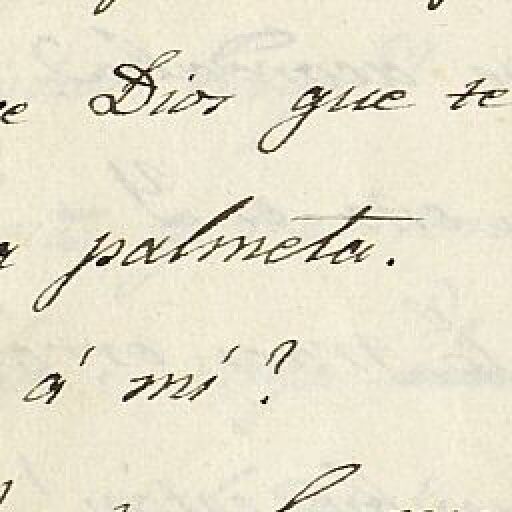 Dios que te
palmeta.
á mí?